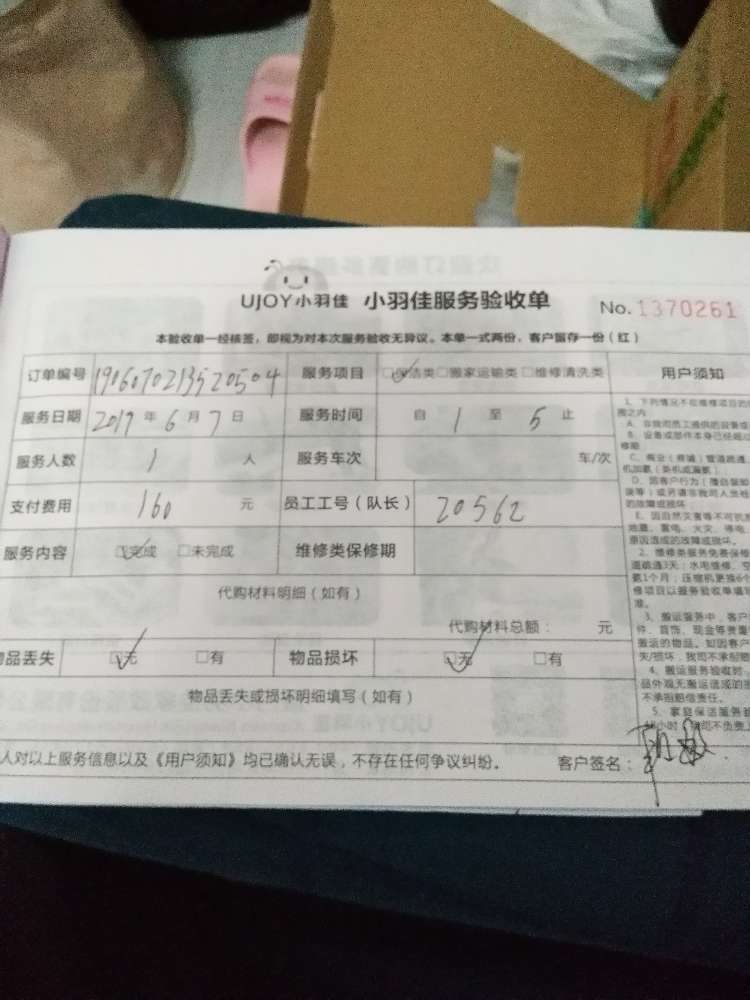 UJOY小羽佳 小羽佳服务验收单 No. 1370261
本验收单一经核签，即视为对本次服务验收无异议。本单一式两份，客户留存一份（红）
订单编号 1906070213520504 服务项目 □保洁类□搬家运输类□维修清洗类 用户须知
服务日期 2019 年 6 月 7 日 服务时间 自 1 至 5 止
服务人数 1 人 服务车次 车/次
支付费用 160 元 员工工号（队长） 20562
服务内容 □完成 □未完成 维修类保修期
代购材料明细（如有）
代购材料总额： 元
物品丢失 □无 □有 物品损坏 □无 □有
物品丢失或损坏明细填写（如有）
人对以上服务信息以及《用户须知》均已确认无误，不存在任何争议纠纷。 客户签名：
1、下列情况不在维修项目的
围之内
A、非我司员工提供的设备或
B、设备或部件本身已经超过
修期
D、因客户行为
的故障或损坏
E、因自然灾害等不可抗
地震、雷电、火灾、停电、
原因造成的故障或损坏。
2、维修类服务免费保修
道疏通3天；水电维修、空
氨1个月；压缩机更换6个
修项目以服务验收单填写
准。
3、搬运服务中，客户
件、首饰、现金等贵重
搬运的物品。如因客户
失/损坏，我司不承担赔
4、搬运服务验收时，
品外观无搬运造成的损
不承担赔偿责任。
5、家庭保洁服务